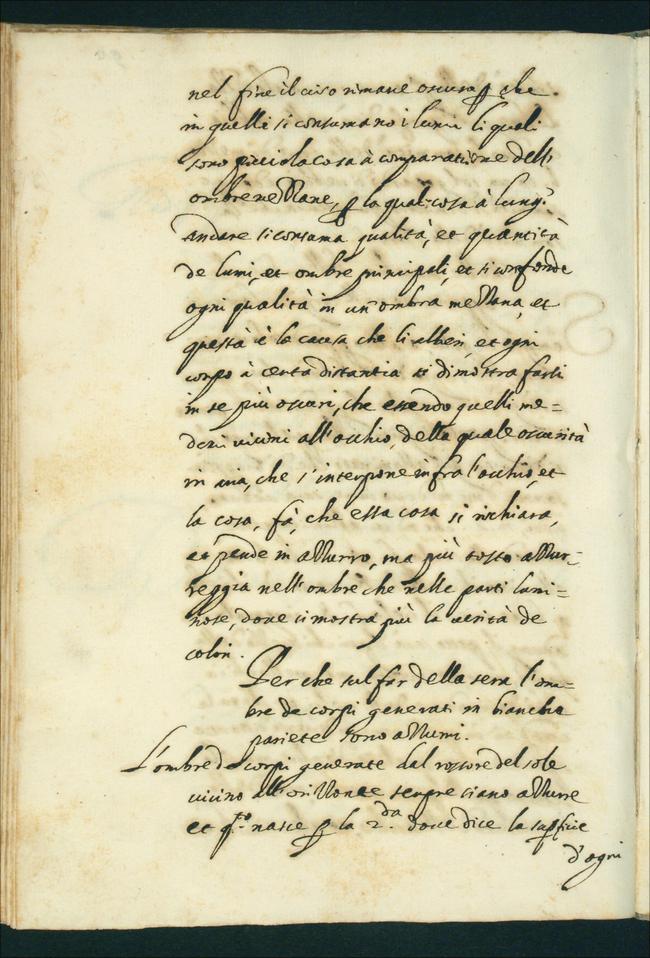 nel fine il viso rimane oscura ꝑ che
in quelli si consumano i lumi li quali
sono picciola cosa à comparatione dell'
ombre mezzane, ꝑ la qual cosa à lung'
andare si consuma qualità, et quantità
de lumi, et ombre principali, et si confonde
ogni qualità in un'ombra mezzana, et
questa è la causa che li alberi, et ogni
corpo à certa distantia si dimostra farsi
in se più oscuri, che essendo quelli me=
desmi vicini all'occhio, della quale oscurità
in aria, che s'interpone infra l'occhio, et
la cosa, fà, che essa cosa si rischiara,
et pende in azzurro, ma più tosto azzur=
reggia nell'ombre che nelle parti lumi=
nose, doue si mostra più la uerità de
colori.
Per che sul far della sera l'om=
bre de corpi generati in biancha
pariete sono azzurri.
L'ombre de corpi generate dal rossore del sole
vicino all'orizzonte sempre siano azzurre
et q.to nasce ꝑ la 2.da doue dice la suꝑficie
d'ogni